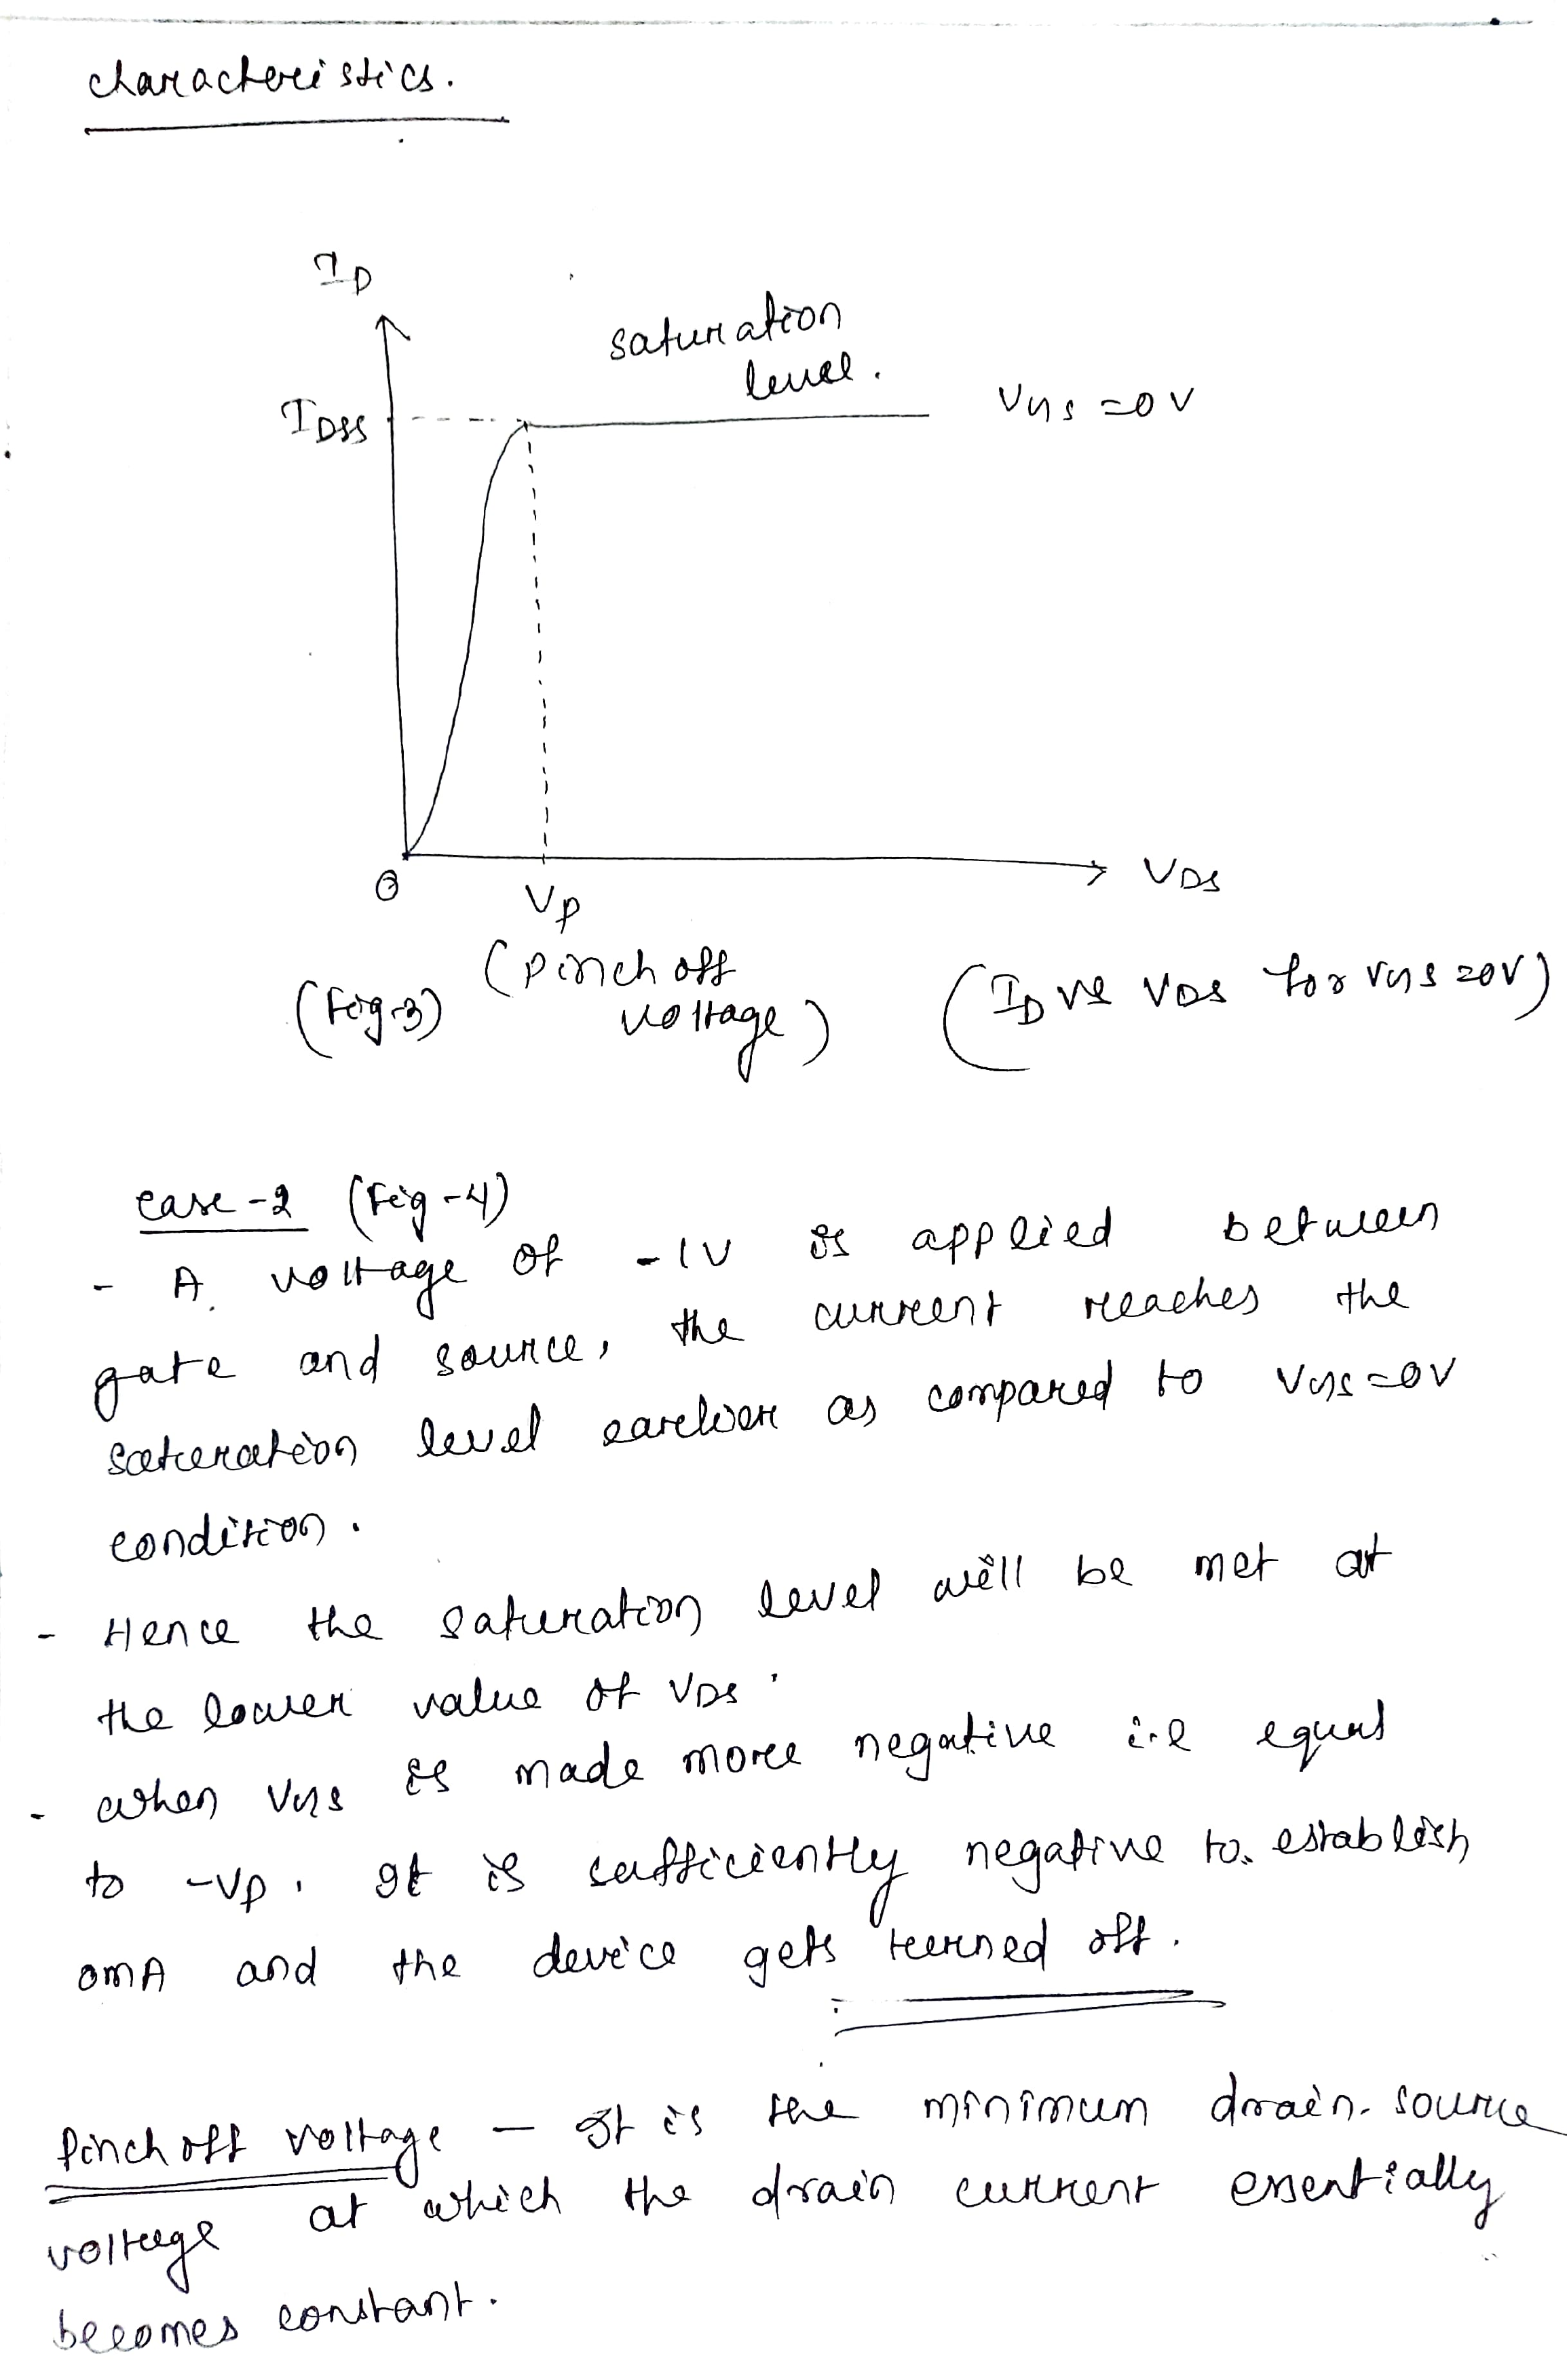 characteristics.
I_D
saturation
level.
I_DSS
V_GS = 0 V
0
V_P
V_DS
(Pinch off
voltage)
(Fig-3)
(I_D vs V_DS for V_GS = 0V)
case-2 (Fig-4)
- A voltage of -1V is applied between
gate and source, the current reaches the
saturation level earlier as compared to V_GS = 0V
condition.
- Hence the saturation level will be met at
the lower value of V_DS.
- when V_GS is made more negative i.e equal
to -V_P. It is sufficiently negative to establish
0mA and the device gets turned off.
Pinch off voltage - It is the minimum drain-source
voltage at which the drain current essentially
becomes constant.